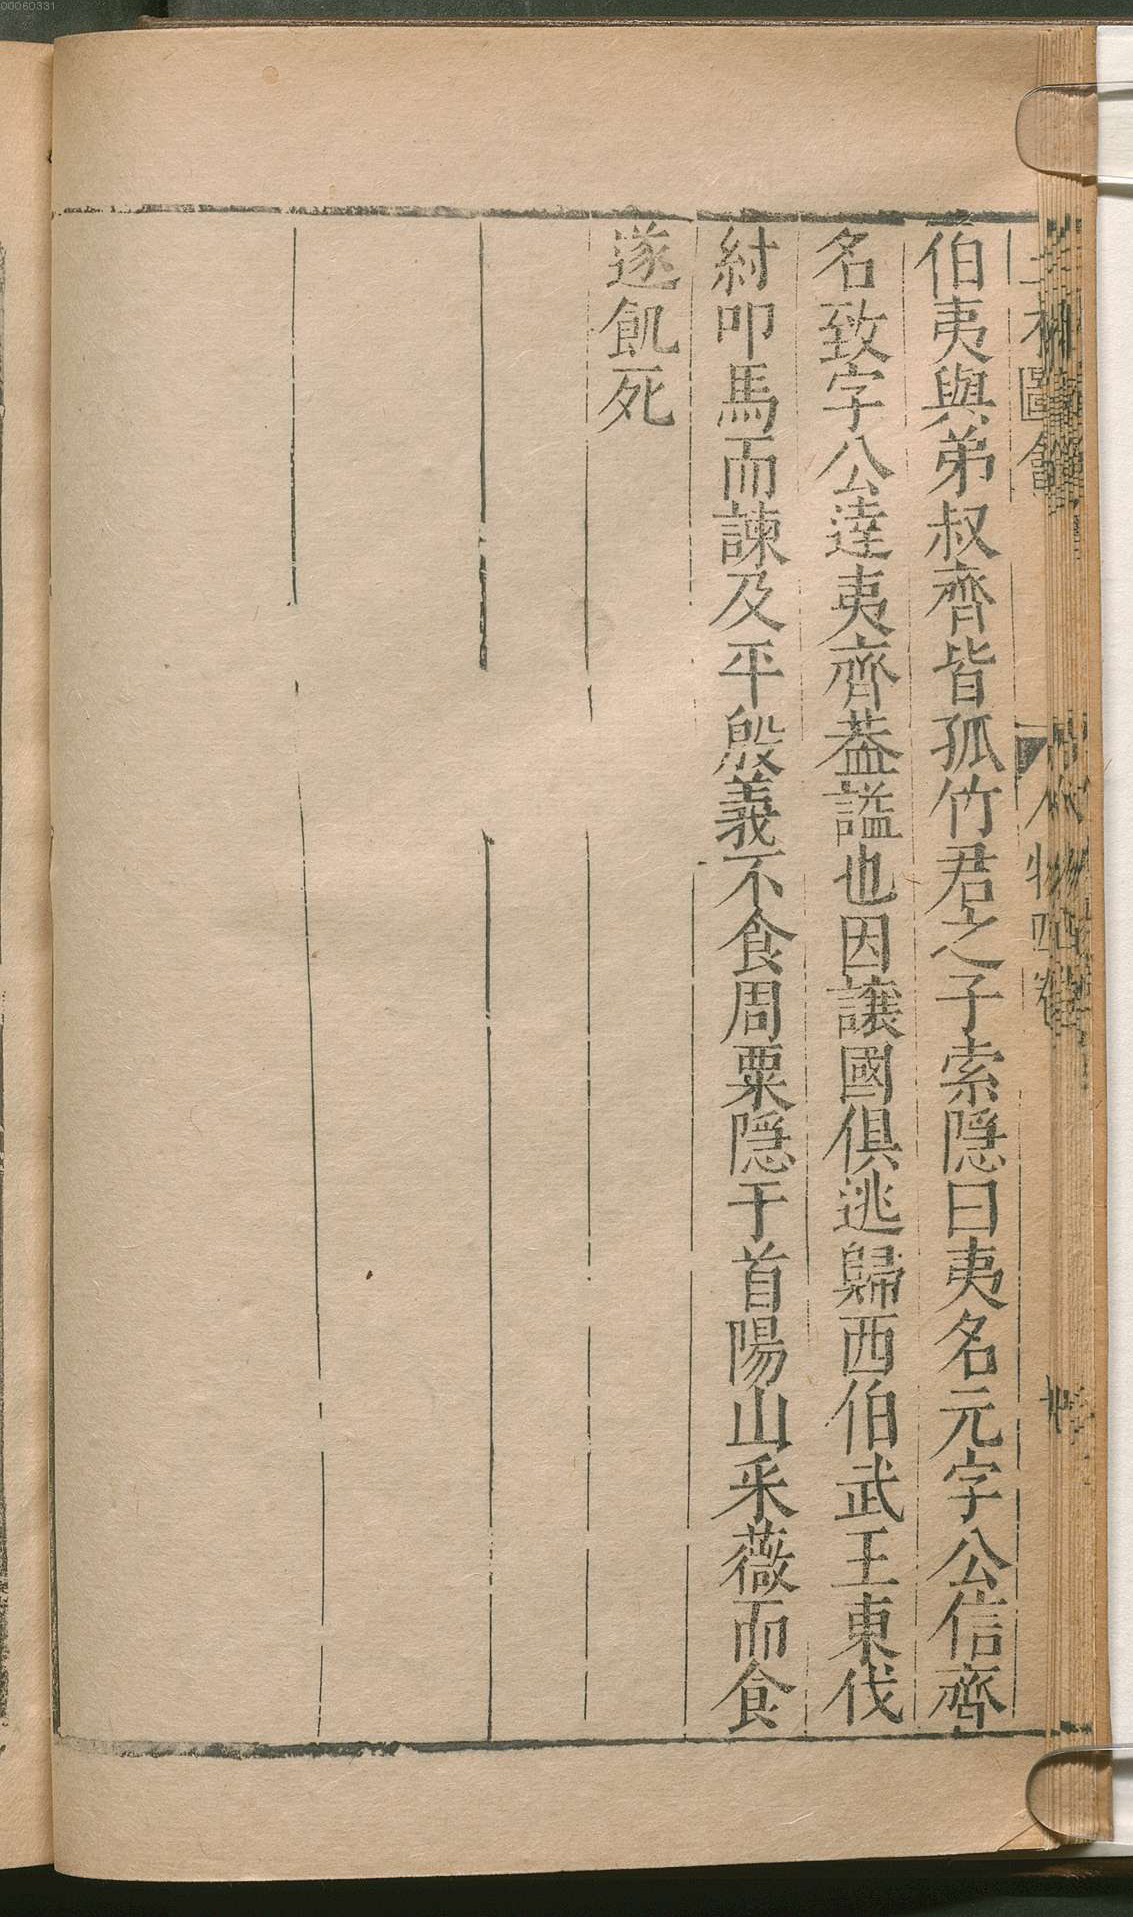 伯夷與弟叔齊皆孤竹君之子索隱曰夷名元字公信齊
名致字公達夷齊葢謚也因讓國俱逃歸西伯武王東伐
紂叩馬而諫及平殷義不食周粟隱于首陽山采薇而食
遂飢死
00060331